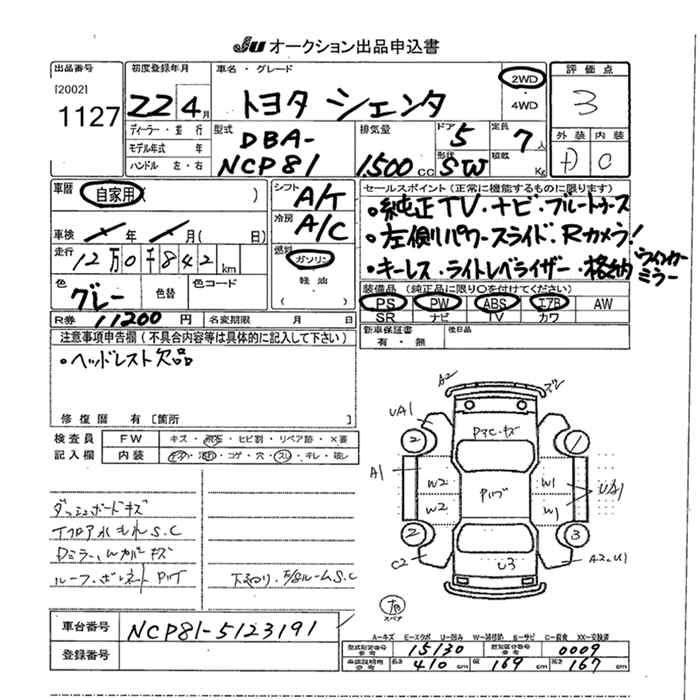 JU オークション出品申込書
出品番号
[2002]
1127
初度登録年月
22 4月
車名・グレード
トヨタ シエンタ
2WD
・
4WD
評価点
3
外装 内装
D C
ディーラー・並行
モデル年式 年
ハンドル 左・右
型式
DBA-
NCP81
排気量
1500 CC
ドア 5
形状 SW
定員 7人
積載 Kg
車歴 自家用( )
車検 年 月( 日)
走行 12万0千842km
色 グレー
色替
色コード
シフト A/T
冷房 A/C
燃料
ガソリン
軽油
セールスポイント(正常に機能するものに限ります)
・純正TV・ナビ・ブルートゥース
・左側パワースライド・Rカメラ!
・キーレス・ライトレベライザー・格納ウインカーミラー
装備品(純正品に限り○を付けてください)
PS PW ABS エアB AW
SR ナビ TV カワ
R券 11200円
名変期限 月 日
新車保証書
有・無
後日品
注意事項申告欄(不具合内容等は具体的に記入して下さい)
・ヘッドレスト欠品
修復歴 有[箇所 ]
検査員
記入欄
FW キズ・飛石・ヒビ割・リペア跡・×要
内装 コゲ・穴・スレ・キレ・破レ
ダッシュボードキズ
Fフロア水もれS.C
Dミラー、Wカバーキズ
ルーフ・ボンネットPハゲ
下回り・E/gルームS.C
A2
UA1
A1
2
2
W2
W2
C2
Pハゲ
U3
W1
W1
UA1
1
3
A2・U1
スペア
車台番号 NCP81-5123191
登録番号
A=キズ E=エクボ U=凹み W=補修跡 S=サビ C=腐食 XX=交換済
型式指定番号 参考 15130
類別区分番号 参考 0009
車検証明用 参考 長さ 410cm 幅 169cm 高さ 167cm